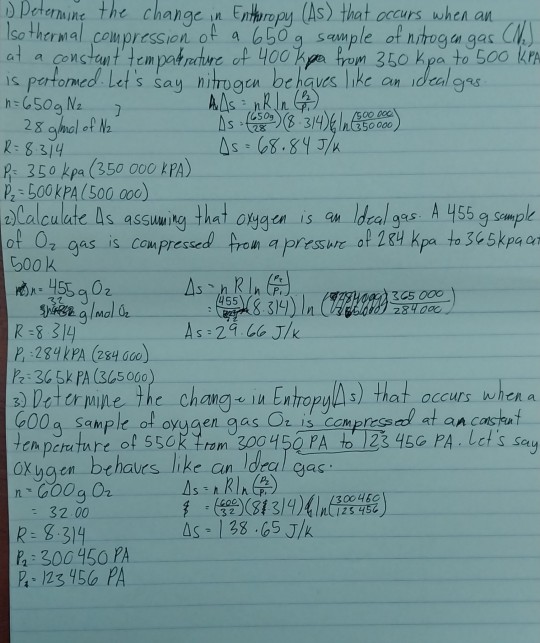 1) Determine the change in Enthropy (Δs) that occurs when an
Isothermal compression of a 650 g sample of nitrogen gas (N₂)
at a constant temperature of 400 from 350 kpa to 500 KPA
is performed. Let's say nitrogen behaves like an ideal gas.
n = 650g N₂
28 g/mol of N₂
R = 8 314
P₁ = 350 kpa (350 000 KPA)
P₂ = 500 KPA (500 000)
Δs = nR ln (P₂/P₁)
Δs = (650g/28)(8.314) ln (500 000/350000)
Δs = 68.84 J/K
2) Calculate Δs assuming that oxygen is an Ideal gas. A 455 g sample
of O₂ gas is compressed from a pressure of 284 Kpa to 365 kpa at
500 k
n = 455 g O₂
32 g/mol O₂
R = 8 314
P₁ = 284 KPA (284 000)
P₂ = 365 KPA (365000)
Δs = n R ln (P₂/P₁)
= (455/32)(8 314) ln (365 000/284 000)
Δs = 29.66 J/K
3) Determine the change in Entropy (Δs) that occurs when a
600 g sample of oxygen gas O₂ is compressed at an constant
temperature of 550K from 300450 PA to 123 456 PA. Let's say
oxygen behaves like an Ideal gas.
n = 600g O₂
= 32.00
R = 8.314
P₂ = 300450 PA
P₁ = 123 456 PA
Δs = n R ln (P₂/P₁)
= (600/32)(8 314) ln (300450/123456)
Δs = 138.65 J/K